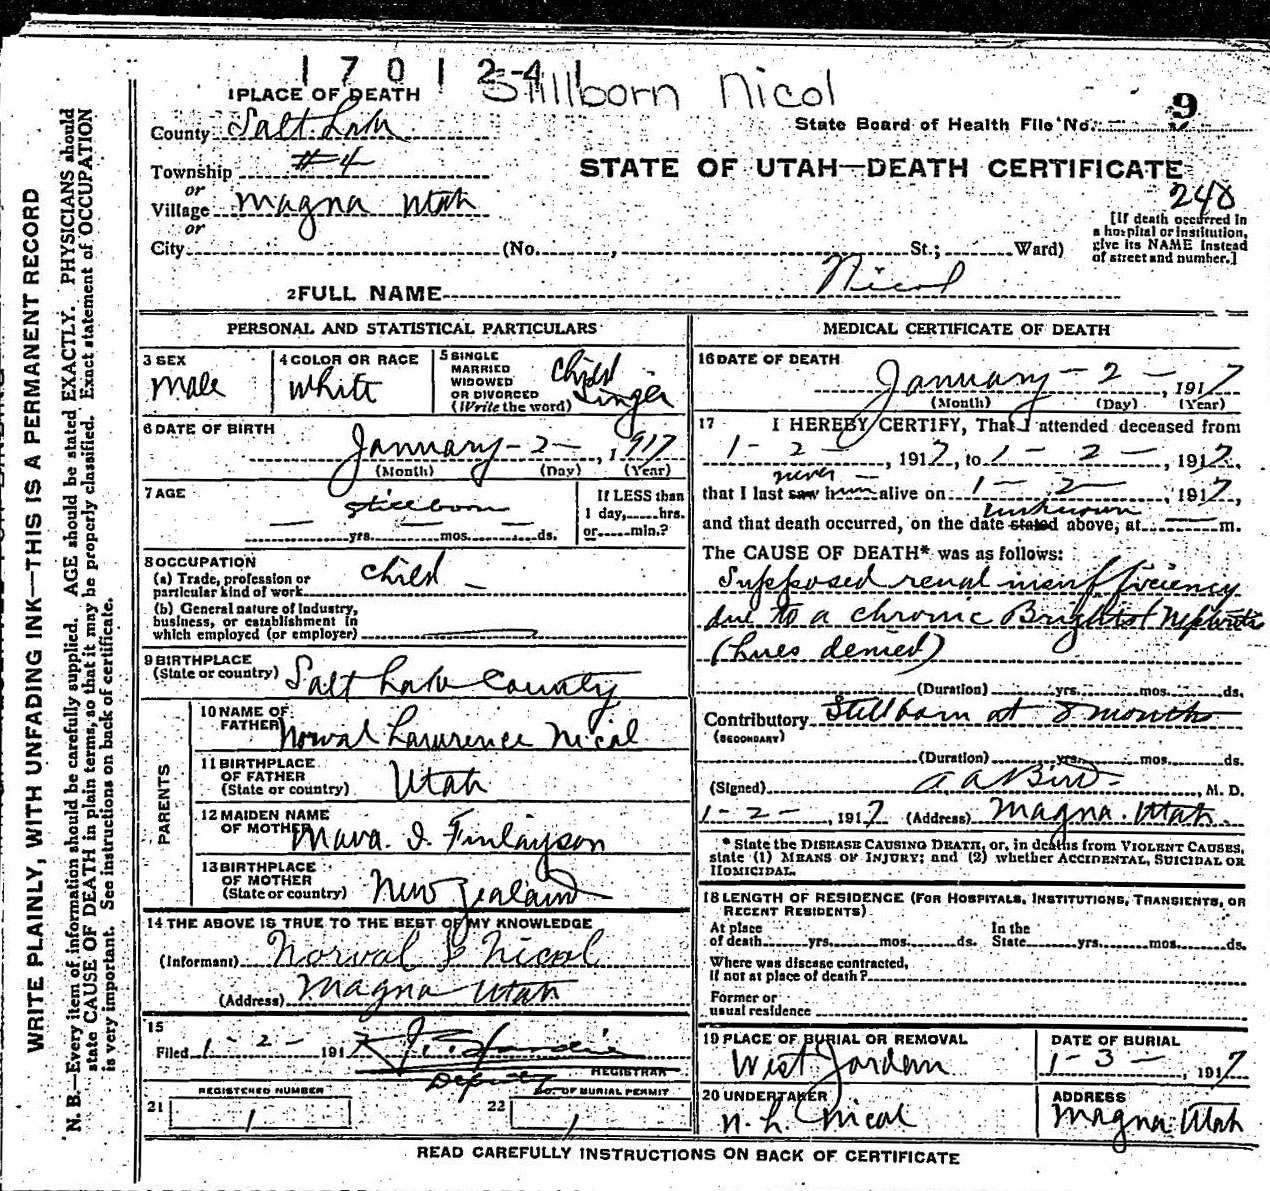 1 7 0 1 2-4 1
Stillborn Nicol
1 PLACE OF DEATH
County Salt Lake
State Board of Health File No. 9
Township #4
STATE OF UTAH—DEATH CERTIFICATE
or
Village Magna Utah
248
or
City (No. , St.; Ward)
[If death occurred in
a hospital or institution,
give its NAME instead
of street and number.]
2 FULL NAME Nicol
PERSONAL AND STATISTICAL PARTICULARS
3 SEX
Male
4 COLOR OR RACE
White
5 SINGLE
MARRIED
WIDOWED
OR DIVORCED
(Write the word)
Child
Single
6 DATE OF BIRTH
January - 2 - , 1917
(Month) (Day) (Year)
7 AGE
Stillborn
yrs. mos. ds.
If LESS than
1 day, hrs.
or min.?
8 OCCUPATION
(a) Trade, profession or
particular kind of work Child
(b) General nature of Industry,
business, or establishment in
which employed (or employer)
9 BIRTHPLACE
(State or country) Salt Lake County
PARENTS
10 NAME OF
FATHER Norval Lawrence Nicol
11 BIRTHPLACE
OF FATHER
(State or country) Utah
12 MAIDEN NAME
OF MOTHER Mava. I. Finlayson
13 BIRTHPLACE
OF MOTHER
(State or country) New Zealand
14 THE ABOVE IS TRUE TO THE BEST OF MY KNOWLEDGE
(Informant) Norval L Nicol
(Address) Magna Utah
15
Filed 1-2- 1917
REGISTRAR
Deputy
REGISTERED NUMBER
No. OF BURIAL PERMIT
21 1
22 1
MEDICAL CERTIFICATE OF DEATH
16 DATE OF DEATH
January - 2 - , 1917
(Month) (Day) (Year)
17 I HEREBY CERTIFY, That I attended deceased from
1 - 2 - , 1917, to 1 - 2 - , 1917,
never
that I last saw him alive on 1 - 2 , 1917,
unknown
and that death occurred, on the date stated above, at m.
The CAUSE OF DEATH* was as follows:
Supposed renal insufficiency
due to a chronic Brights/Nephritis
(Lues denied)
(Duration) yrs. mos. ds.
Contributory Stillborn at 8 months
(SECONDARY)
(Duration) yrs. mos. ds.
(Signed) A A Bird , M. D.
1-2- , 1917 (Address) Magna. Utah.
* State the DISEASE CAUSING DEATH, or, in deaths from VIOLENT CAUSES,
state (1) MEANS OF INJURY; and (2) whether ACCIDENTAL, SUICIDAL OR
HOMICIDAL.
18 LENGTH OF RESIDENCE (FOR HOSPITALS, INSTITUTIONS, TRANSIENTS, OR
RECENT RESIDENTS)
At place
of death yrs. mos. ds.
In the
State yrs. mos. ds.
Where was disease contracted,
If not at place of death?
Former or
usual residence
19 PLACE OF BURIAL OR REMOVAL
West Jordan
DATE OF BURIAL
1-3- , 1917
20 UNDERTAKER
N. L. Nicol
ADDRESS
Magna Utah
READ CAREFULLY INSTRUCTIONS ON BACK OF CERTIFICATE
WRITE PLAINLY, WITH UNFADING INK—THIS IS A PERMANENT RECORD
N. B.—Every item of information should be carefully supplied. AGE should be stated EXACTLY. PHYSICIANS should
state CAUSE OF DEATH in plain terms, so that it may be properly classified. Exact statement of OCCUPATION
is very important. See instructions on back of certificate.